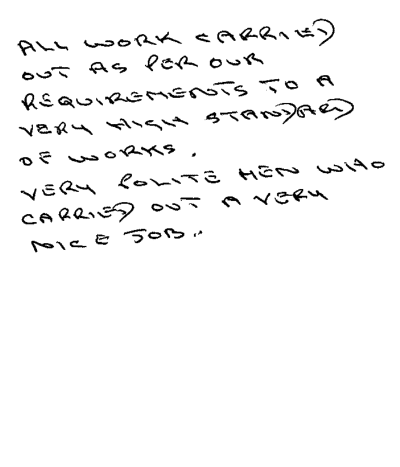 ALL WORK CARRIED
OUT AS PER OUR
REQUIREMENTS TO A
VERY HIGH STANDARD
OF WORKS.
VERY POLITE MEN WHO
CARRIED OUT A VERY
NICE JOB..